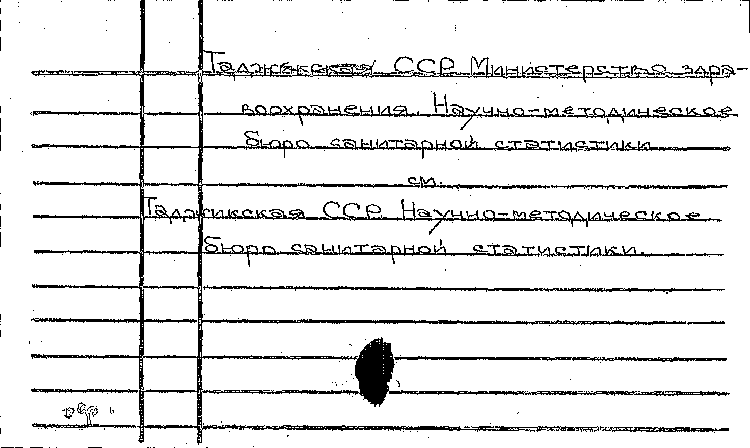 Таджикская ССР. Министерство здра-
воохранения. Научно-методическое
бюро санитарной статистики
см.
Таджикская ССР. Научно-методическое
бюро санитарной статистики.